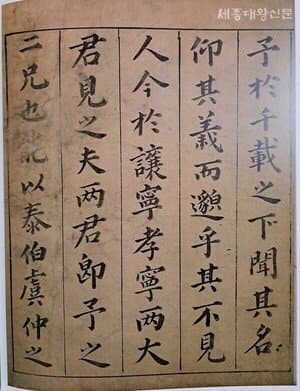 세종대왕신문
予於千載之下聞其名
仰其義而邈乎其不見
人今於讓寧孝寧兩大
君見之夫两君即予之
二兄也能以泰伯虞仲之